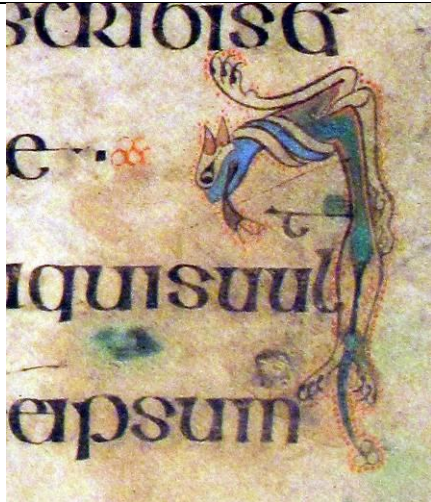 scribis &
e
t
iquisuul
eipsum